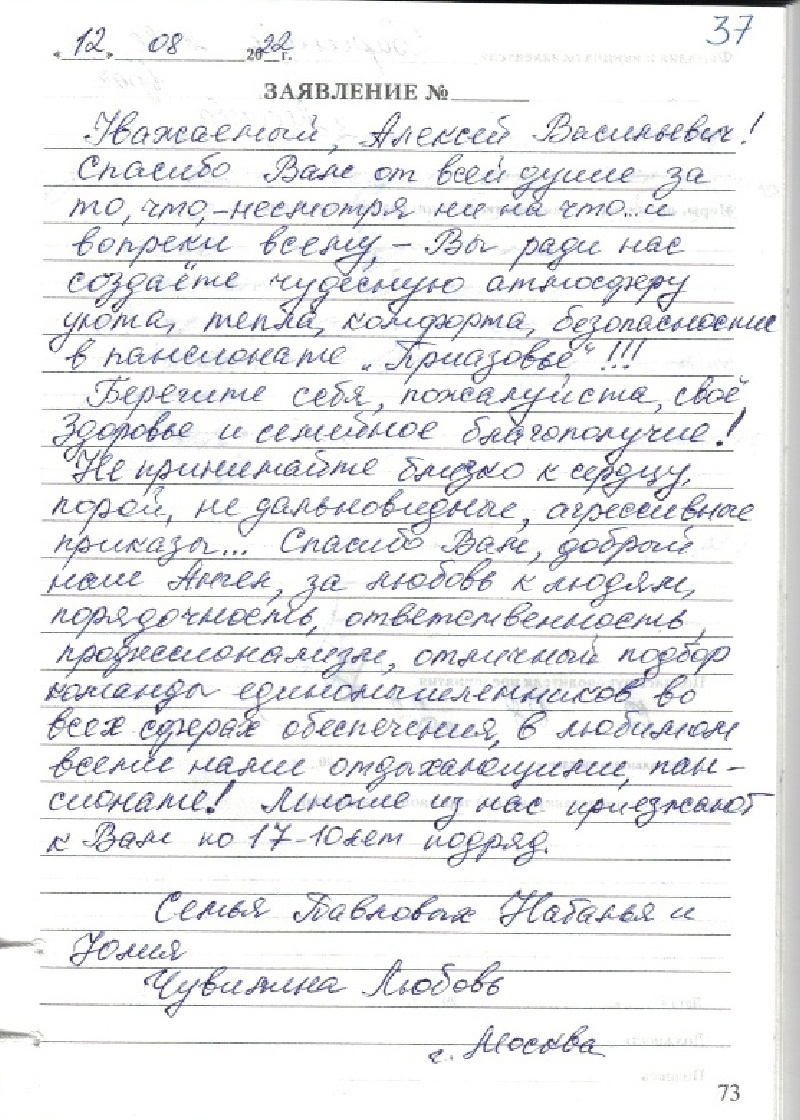 37
"12" 08 2022 г.
ЗАЯВЛЕНИЕ №
Уважаемый, Алексей Васильевич!
Спасибо Вам от всей души за
то, что, – несмотря ни на что... и
вопреки всему, – Вы ради нас
создаёте чудесную атмосферу
уюта, тепла, комфорта, безопасности
в пансионате „Приазовье“!!!
Берегите себя, пожалуйста, своё
Здоровье и семейное благополучие!
Не принимайте близко к сердцу,
порой, не дальновидные, агрессивные
приказы... Спасибо Вам, добрый
наш Ангел, за любовь к людям,
порядочность, ответственность,
профессионализм, отличный подбор
команды единомышленников во
всех сферах обеспечения, в любимом
всеми нами отдыхающими, пан-
сионате! Многие из нас приезжают
к Вам по 17-10 лет подряд.
Семья Павловых Наталья и
Юлия
Любовь
г. Москва
73